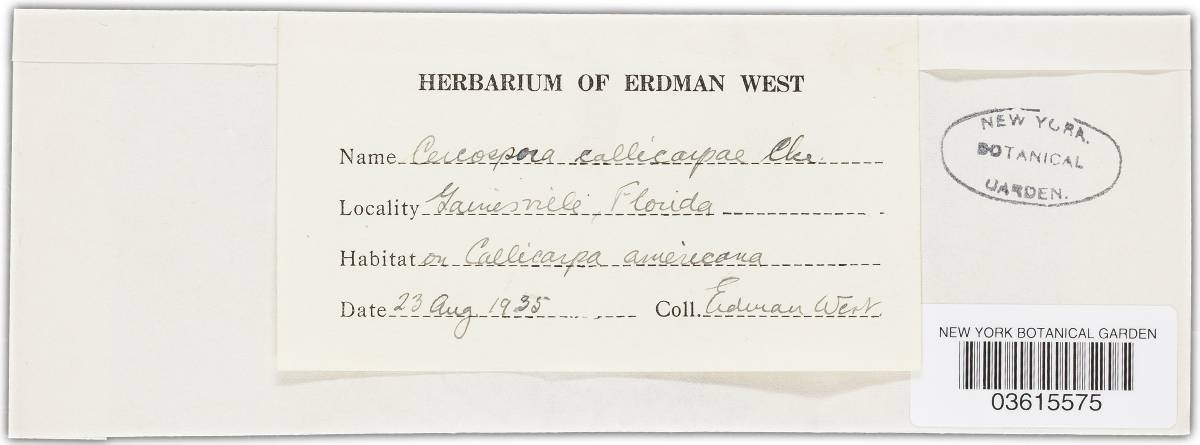 HERBARIUM OF ERDMAN WEST
Name Cercospora callicarpae Cke.
Locality Gainesville, Florida
Habitat on Callicarpa americana
Date 23 Aug 1935 Coll. Erdman West
NEW YORK
BOTANICAL
GARDEN.
NEW YORK BOTANICAL GARDEN
03615575